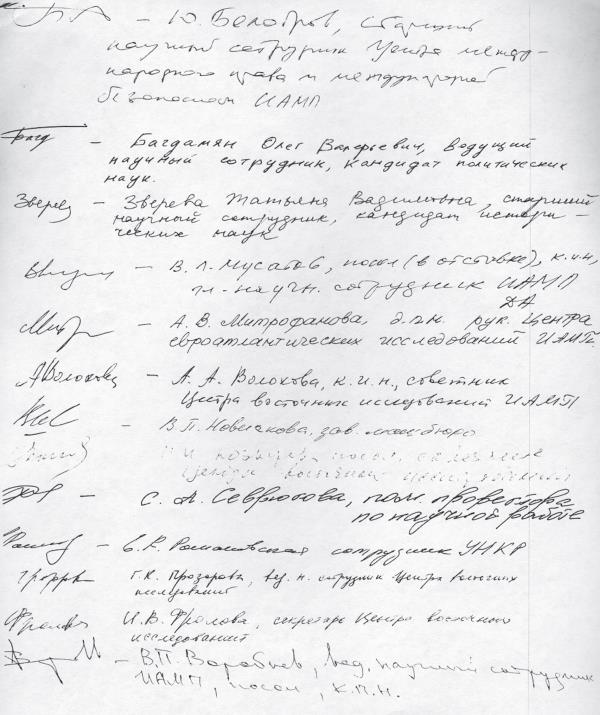 – Ю. Белобров, старший
научный сотрудник Центра между-
народного права и международной
безопасности ИАМП
– Багдамян Олег Валерьевич, ведущий
научный сотрудник, кандидат политических
наук.
Зверева – Зверева Татьяна Вадимовна, старший
научный сотрудник, кандидат истори-
ческих наук
– В. Л. Мусатов, посол (в отставке), к.и.н,
гл. научн. сотрудник ИАМП
ДА
– А. В. Митрофанова, д.п.н. рук. Центра
евроатлантических исследований ИАМП.
АВолохова – А. А. Волохова, к.и.н., советник
Центра восточных исследований ИАМП
– В.П. Новичкова, зав. машбюро
посол,
Центра восточных исследований
– С. А. Севрюгова, пом. проректора
по научной работе
– Романовская сотрудник УНКР
Г.К. Прозорова, вед. н. сотрудник Центра восточных
исследований
Фролова И.В. Фролова, секретарь Центра восточного
исследований
– В.П. Воробьев, вед. научный сотрудник
ИАМП, посол, к.п.н.